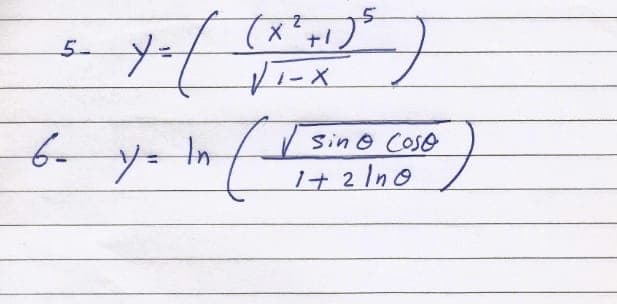 5- y = ( (x²+1)⁵ / √(1-x) )
6- y = ln ( √(sin θ cos θ) / (1 + 2 ln θ) )